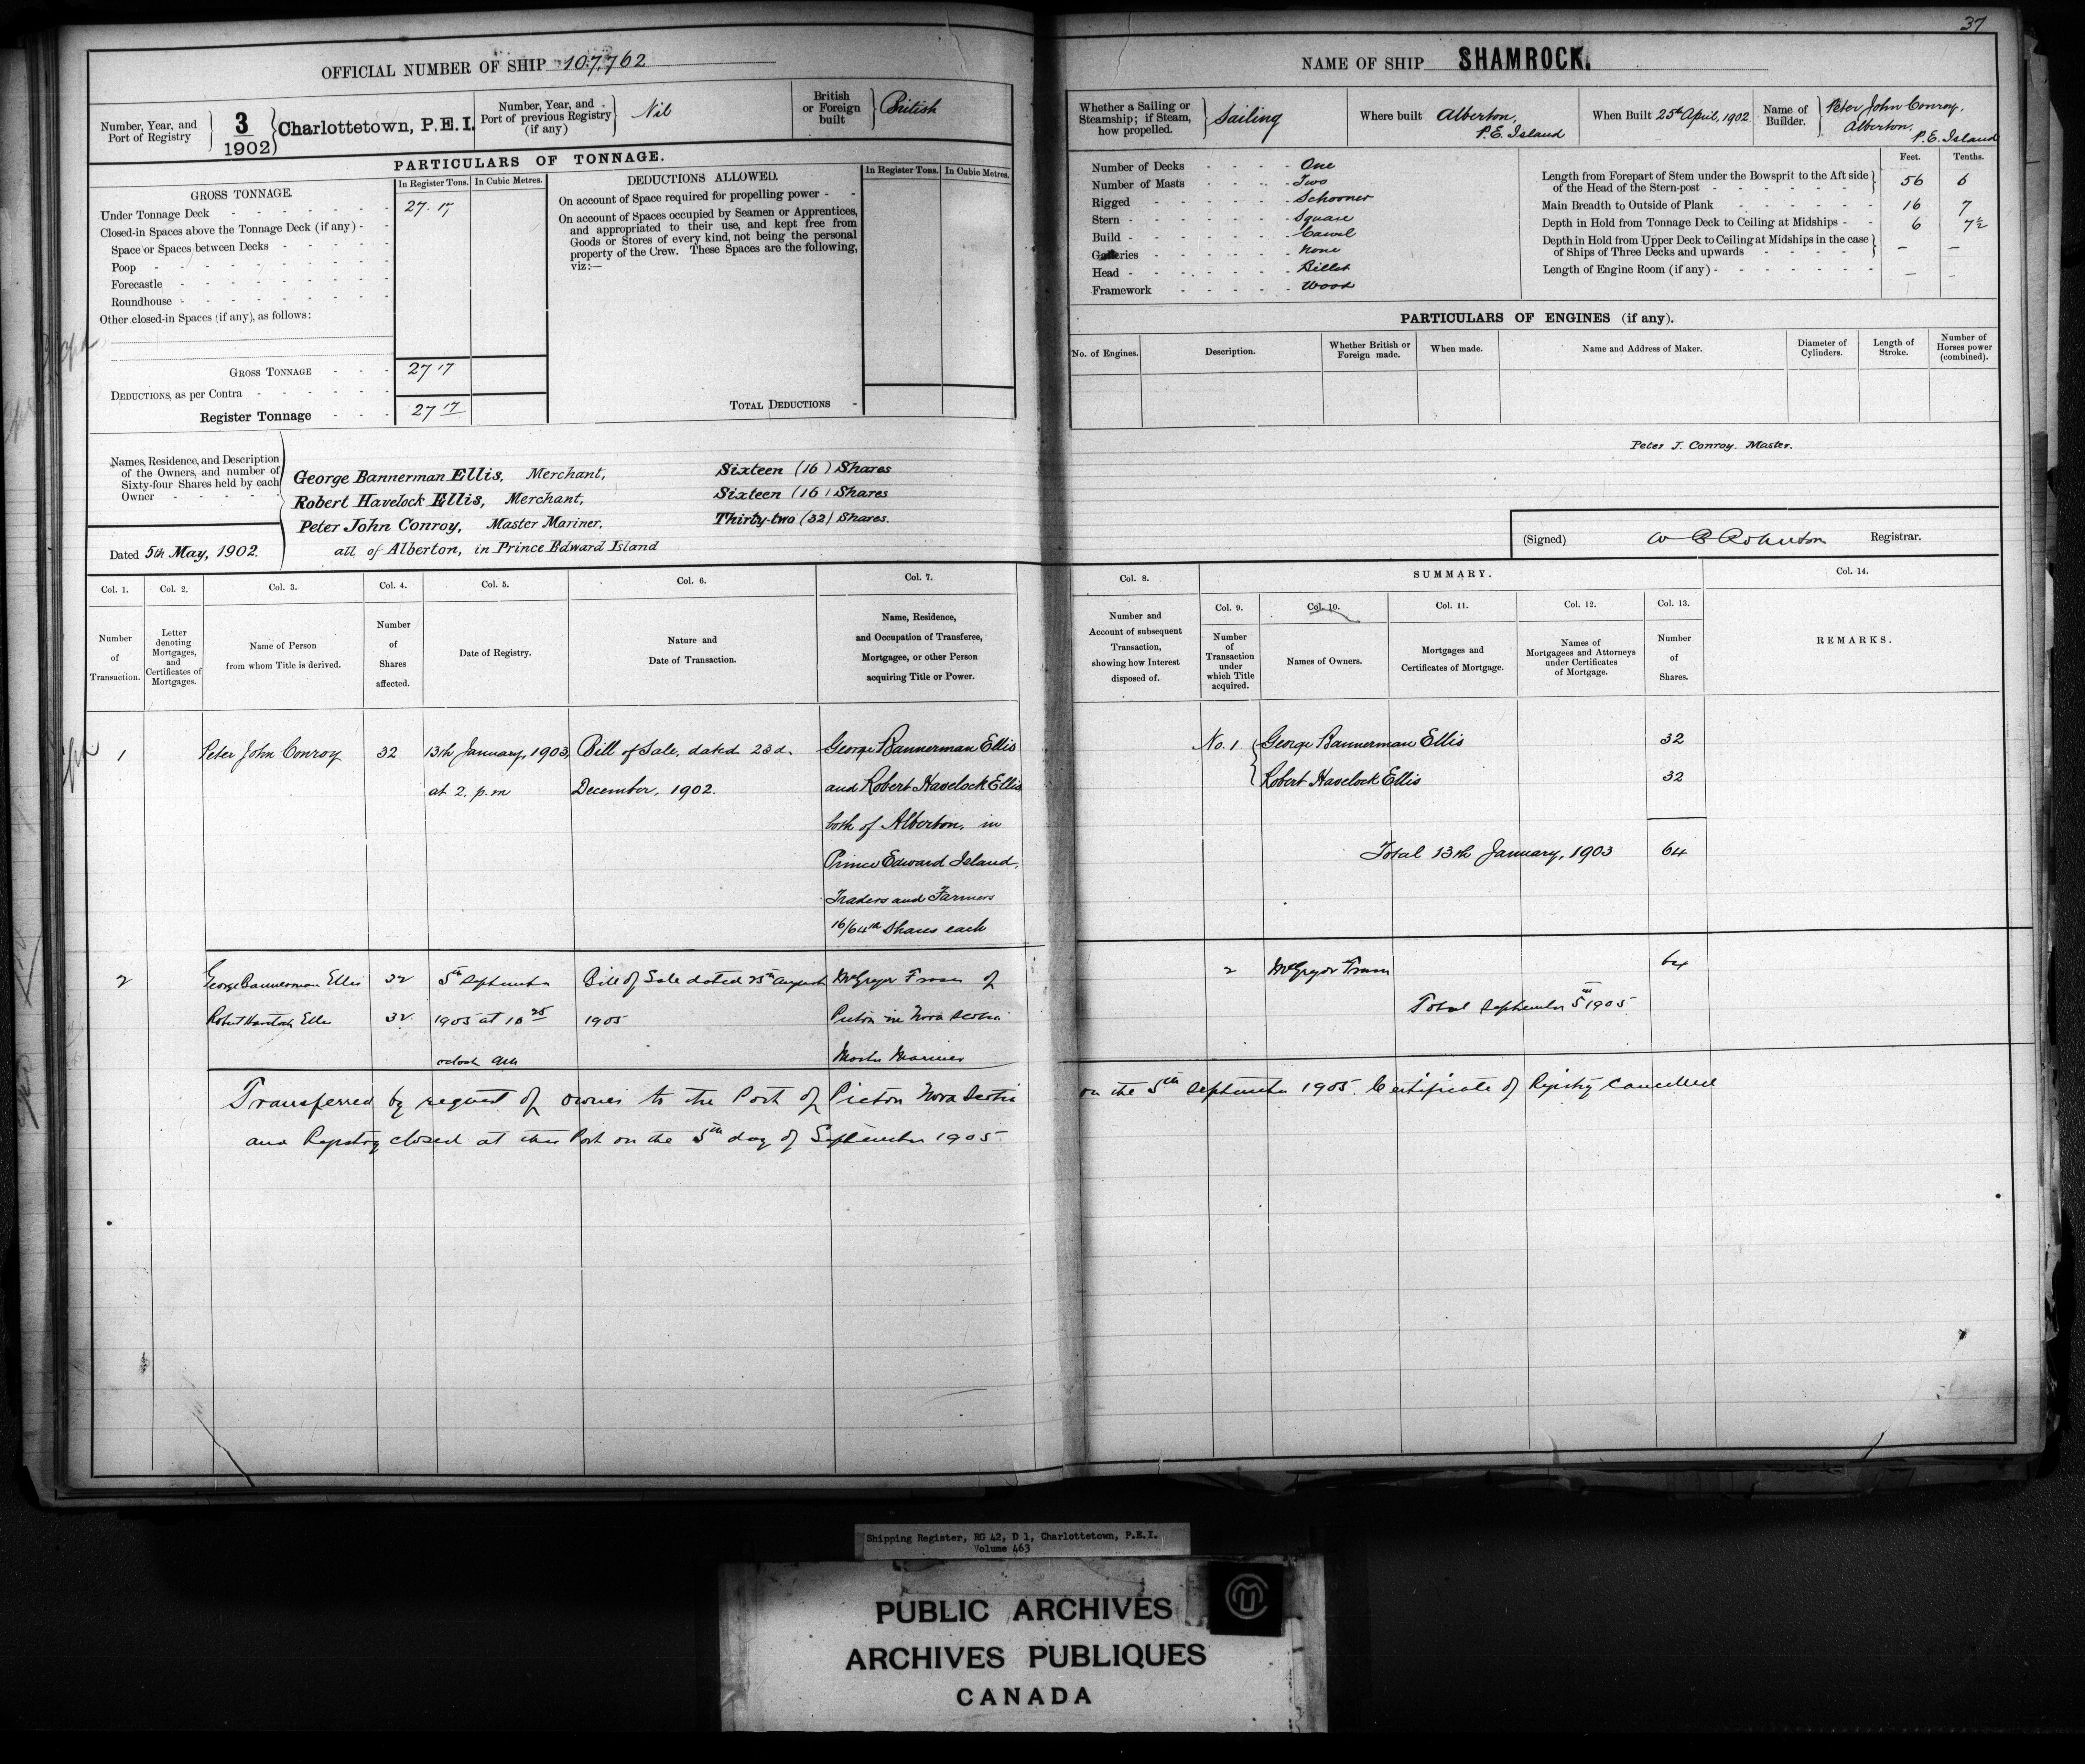 37
OFFICIAL NUMBER OF SHIP 107,762
Number, Year, and Port of Registry 3/1902 Charlottetown, P.E.I.
Number, Year, and Port of previous Registry (if any) Nil
British or Foreign built British
PARTICULARS OF TONNAGE.
GROSS TONNAGE.
In Register Tons. In Cubic Metres.
Under Tonnage Deck 27.17
Closed-in Spaces above the Tonnage Deck (if any) -
Space or Spaces between Decks
Poop
Forecastle
Roundhouse
Other closed-in Spaces (if any), as follows:
GROSS TONNAGE 27 17
DEDUCTIONS, as per Contra
Register Tonnage 27 17
DEDUCTIONS ALLOWED.
In Register Tons. In Cubic Metres.
On account of Space required for propelling power -
On account of Spaces occupied by Seamen or Apprentices,
and appropriated to their use, and kept free from
Goods or Stores of every kind, not being the personal
property of the Crew. These Spaces are the following,
viz:—
TOTAL DEDUCTIONS -
Names, Residence, and Description
of the Owners, and number of
Sixty-four Shares held by each
Owner
George Bannerman Ellis, Merchant, Sixteen (16) Shares
Robert Havelock Ellis, Merchant, Sixteen (16) Shares
Peter John Conroy, Master Mariner, Thirty-two (32) Shares.
all of Alberton, in Prince Edward Island
Dated 5th May, 1902.
NAME OF SHIP SHAMROCK.
Whether a Sailing or Steamship; if Steam, how propelled. Sailing
Where built Alberton, P.E. Island
When Built 25th April, 1902
Name of Builder. Peter John Conroy, Alberton, P.E. Island
Number of Decks One
Number of Masts Two
Rigged Schooner
Stern Square
Build Carvel
Galleries None
Head Billet
Framework Wood
Feet. Tenths.
Length from Forepart of Stem under the Bowsprit to the Aft side
of the Head of the Stern-post 56 6
Main Breadth to Outside of Plank 16 7
Depth in Hold from Tonnage Deck to Ceiling at Midships 6 7½
Depth in Hold from Upper Deck to Ceiling at Midships in the case
of Ships of Three Decks and upwards — —
Length of Engine Room (if any) — —
PARTICULARS OF ENGINES (if any).
No. of Engines.
Description.
Whether British or Foreign made.
When made.
Name and Address of Maker.
Diameter of Cylinders.
Length of Stroke.
Number of Horses power (combined).
Peter J. Conroy. Master.
(Signed) Registrar.
Col. 1. Number of Transaction.
Col. 2. Letter denoting Mortgages, and Certificates of Mortgages.
Col. 3. Name of Person from whom Title is derived.
Col. 4. Number of Shares affected.
Col. 5. Date of Registry.
Col. 6. Nature and Date of Transaction.
Col. 7. Name, Residence, and Occupation of Transferee, Mortgagee, or other Person acquiring Title or Power.
Col. 8. Number and Account of subsequent Transaction, showing how Interest disposed of.
SUMMARY.
Col. 9. Number of Transaction under which Title acquired.
Col. 10. Names of Owners.
Col. 11. Mortgages and Certificates of Mortgage.
Col. 12. Names of Mortgagees and Attorneys under Certificates of Mortgage.
Col. 13. Number of Shares.
Col. 14. REMARKS.
1 Peter John Conroy 32 13th January, 1903, Bill of Sale, dated 23d George Bannerman Ellis
at 2, p.m December, 1902. and Robert Havelock Ellis
both of Alberton, in
Prince Edward Island,
Traders and Farmers
16/64th Shares each
No. 1 George Bannerman Ellis 32
Robert Havelock Ellis 32
Total 13th January, 1903 64
2 George Bannerman Ellis 32 5th September Bill of Sale dated 25th August McGregor Fraser of
Robert Havelock Ellis 32 1905 at 10 25 1905 Pictou in Nova Scotia
oclock am Master Mariner
2 McGregor Fraser 64
Total September 5th 1905
Transferred by request of owner to the Port of Pictou Nova Scotia on the 5th September 1905. Certificate of Registry Cancelled
and Registry closed at this Port on the 5th day of September 1905.
Shipping Register, RG 42, D 1, Charlottetown, P.E.I.
Volume 463
PUBLIC ARCHIVES
ARCHIVES PUBLIQUES
CANADA